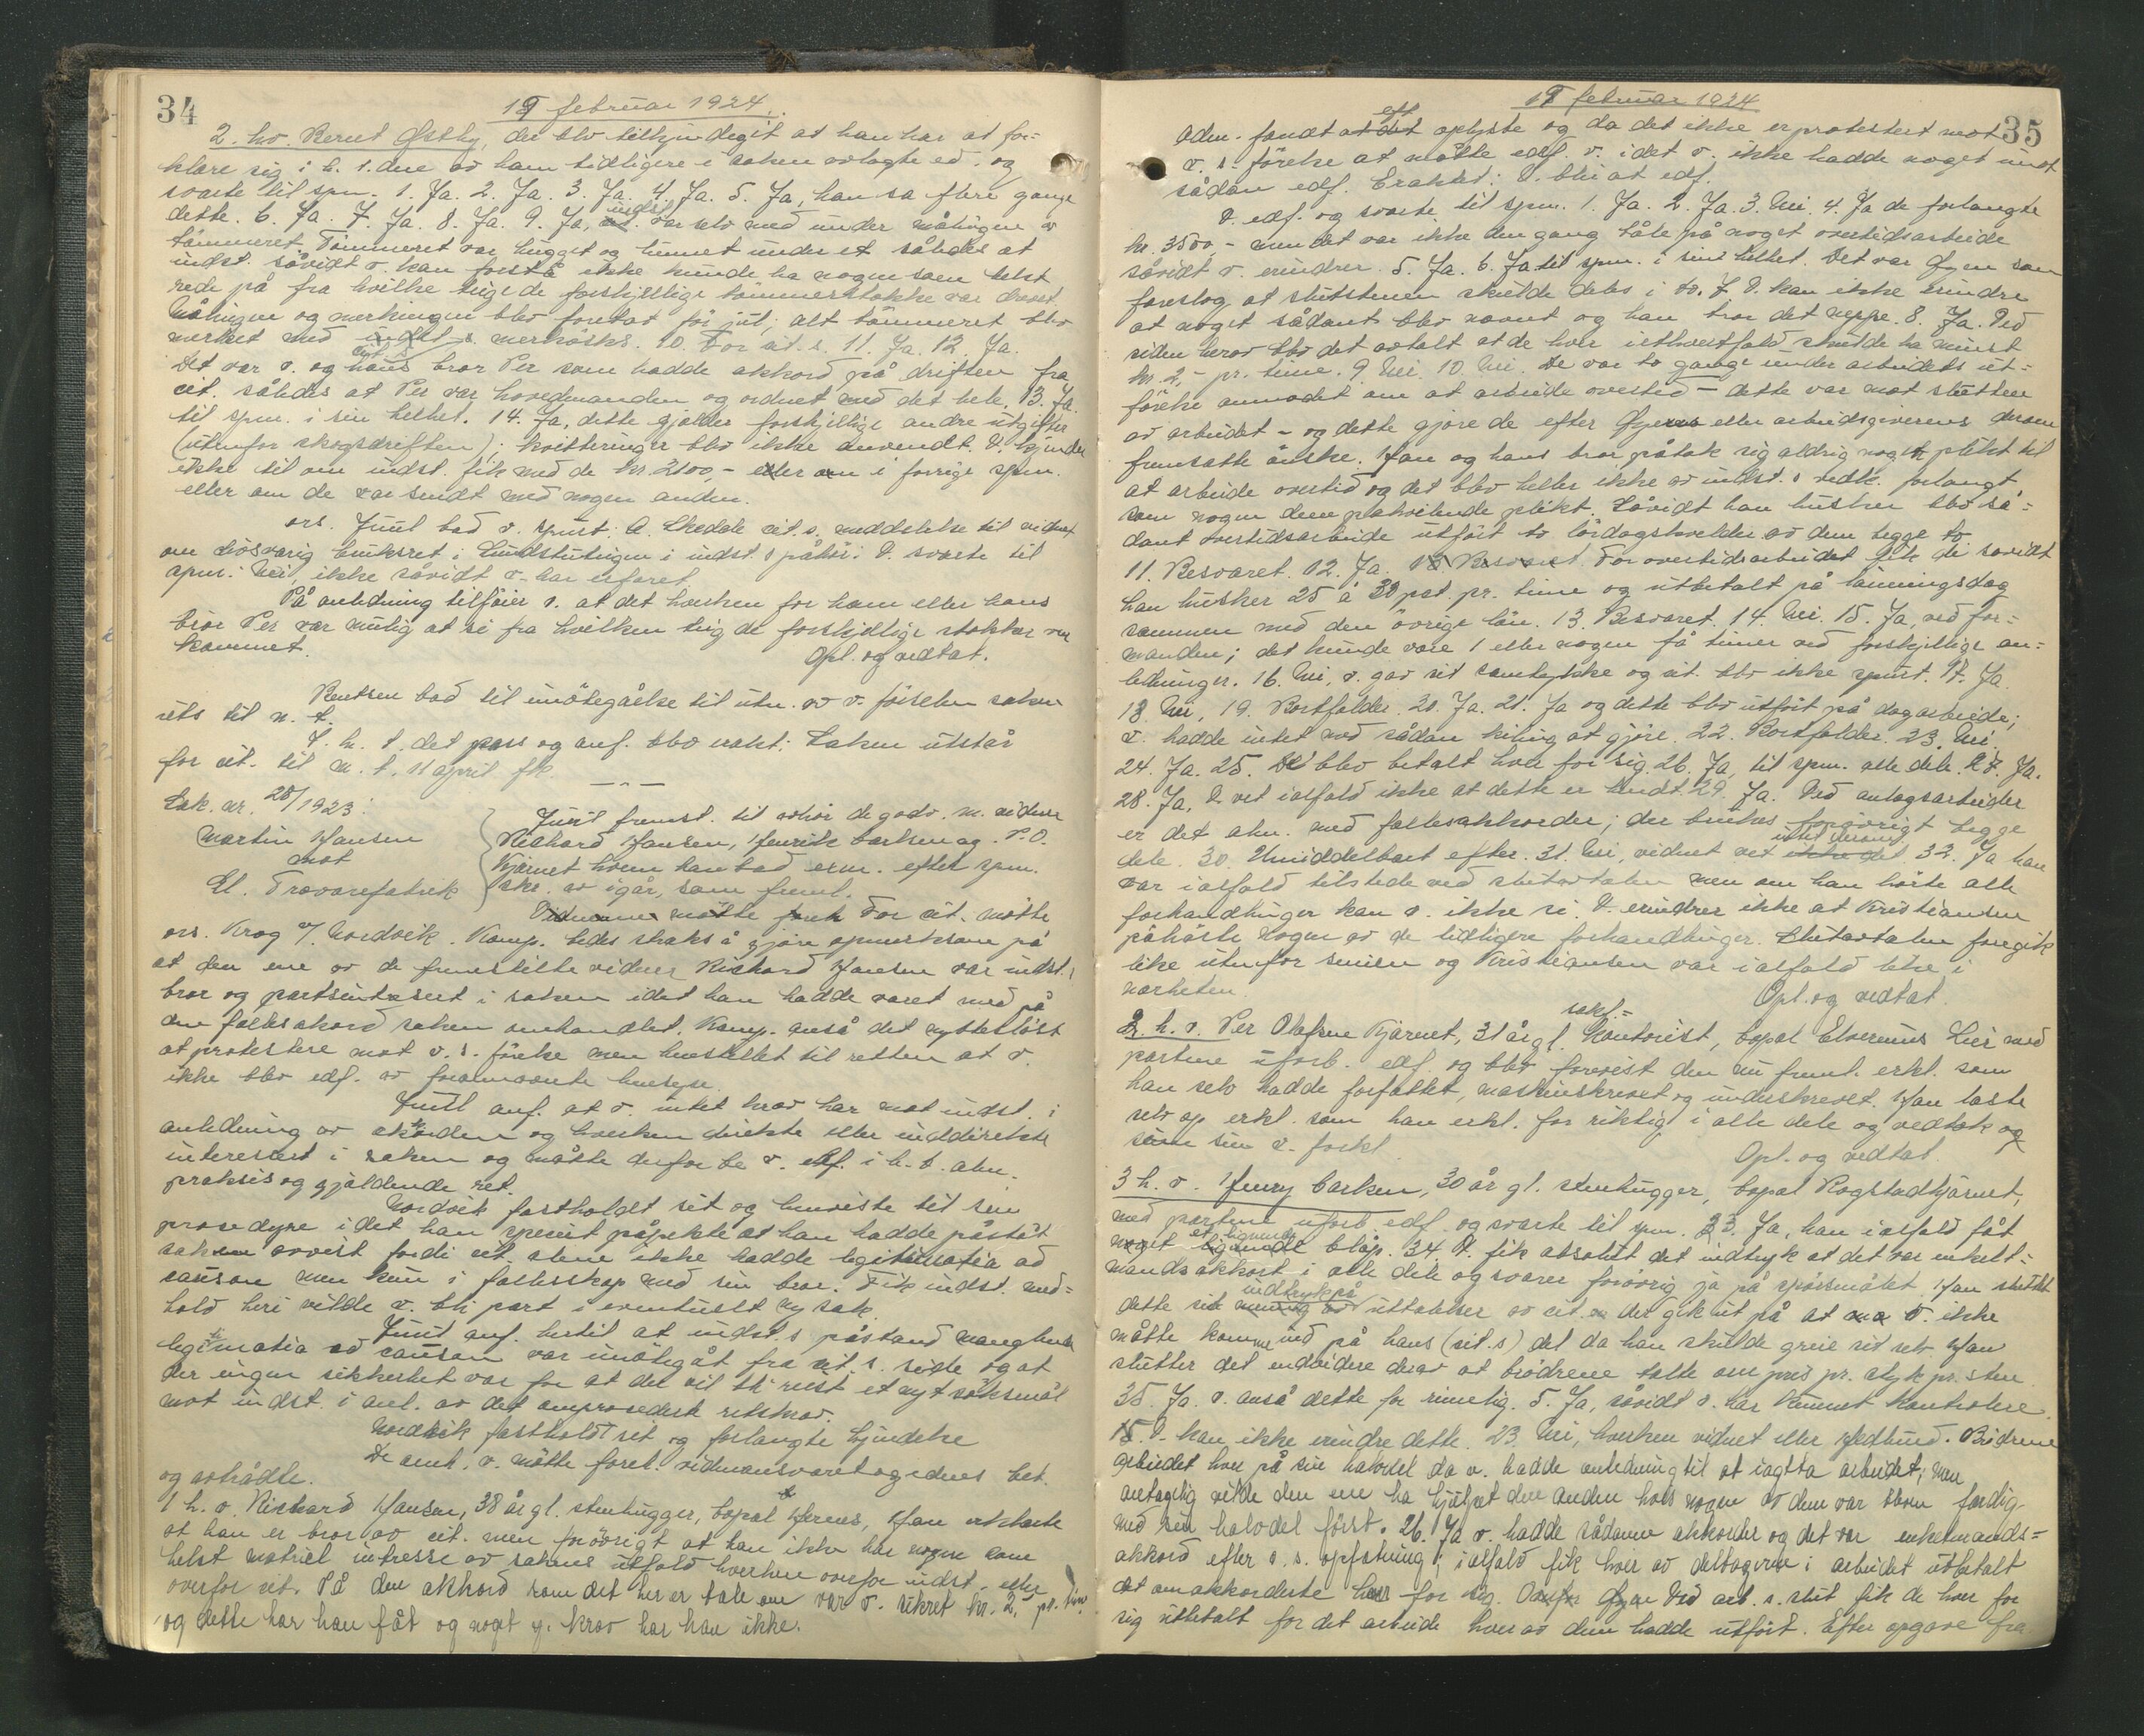 34
19 februar 1924.
2. hv. Bernt Østby, der blev tilkjendegit at han har at for-
klare sig i h. t. den av ham tidligere i saken avlagte ed. og
svarte til spm. 1. Ja. 2. Ja. 3. Ja. 4. Ja. 5. Ja, han sa flere gange
dette. 6. Ja. 7. Ja. 8. Ja. 9. Ja, indst. var selv med under målingen av
tømmeret. Tømmeret var hugget og lunnet under et således at
indst. såvidt v. kan forstå ikke kunde ha nogen som helst
rede på fra hvilke teige de forskjellige tømmerstokke var drevet.
Målingen og merkingen blev foretat før jul; alt tømmeret blev
merket med s. merkeøks. 10. For cit. s. 11. Ja. 12. Ja.
Det var v. og hans bror Per som hadde akkord på driften fra
cit. således at Per var hovedmanden og ordnet med det hele. 13. Ja
til spm. i sin helhet. 14. Ja, dette gjælder forskjellige andre utgifter
(utenfor skogsdriften); kvitteringer blev ikke anvendt. V. kjender
ikke til om indst. fik med de kr. 2100,- eller om i forrige spm.
eller om de var sendt med nogen anden.
ors. Juul bad v. spurt: A. Skedale cit. s. meddelelse til vidnet
om løsvarig buksret i Lundstuteigen i indst. s påhør: V. svarte til
spm.: Nei, ikke såvidt v. har erfaret.
På anledning tilføier v. at det hverken for ham eller hans
bror Per var mulig at si fra hvilken teig de forskjellige stokker var
kommet.
Opl. og vedtat.
Bentsen bad til imøtegåelse til utn. av v. førselen saken
uts til n. t.
I. h. t. det pass og anf. blev erakt: Saken utstår
for cit. til m. t. 11 april fk.
Sak. nr. 28/1923:
Martin Hansen
mot
El. Trævarefabrik
Juul fremst. til avhør de godv. m. vidner
Richard Hansen, Henrik Carlsen og P. O.
Kjærnet hvem han bad exm. efter spm.
skr. av igår, som freml.
For cit. møtte
ors. Krog v/ Nordvik. Komp. lodes straks å gjøre opmerksom på
at den ene av de fremstilte vidner Richard Hansen var indst. s
bror og partsintresert i saken idet han hadde været med på
den fælles akord saken omhandlet. Komp. anså det nytteløst
at protestere mot v. s. førelse men henstillet til retten at v.
ikke blev edf. av foranævnte hensyn.
Juul anf. at v. intet krav har mot indst. i
anledning av akkorden og hverken direkte eller inddirekte
interessert i saken og måtte derfor be v. edf. i h. t. alm.
praksis og gjældende ret.
Nordvik fastholdt sit og henviste til sin
prosedyre idet han specielt påpekte at han hadde påståt
saken avvist fordi cit alene ikke hadde legitimatia ad
causam men kun i fællesskap med sin bror. Fik indst. med-
hold heri vilde v. bli part i eventuelt ny sak.
Juul anf. hertil at indst. s påstand manglende
legitimatia ad causam var imøtegåt fra cit. s. side og at
der ingen sikkerhet var for at det vil bli reist et nyt søksmål
mot indst. i anl. av det omprosederte retskrav.
Nordvik fastholdt sit og forlangte kjendelse
De anm. v. møtte forel. vidneansvaret og edens bet.
og avtrådte.
1 h. v. Richard Hansen, 38 år gl. stenhugger, bopæl Hernes, Han erklærte
at han er bror av cit. men forøvrigt at han ikke har nogen som
helst matriel intresse av sakens utfald hverken overfor indst. eller
overfor cit. På den akkord som det her er tale om var v. sikret kr. 2,- pr. time
og dette har han fåt og noget y. krav har han ikke.
19 februar 1924
35
Adm. fandt at det oplyste og da det ikke er protestert mot
v. s. førelse at måtte edf. v. idet v. ikke hadde noget imot
sådan edf. Eraktet: V. blir at edf.
V. edf. og svarte til spm. 1. Ja. 2. Ja. 3. Nei. 4. Ja de forlangte
kr. 3500,- men det var ikke den gang tale på noget overtidsarbeide
såvidt v. erindrer. 5. Ja. 6. Ja til spm. i sin helhet. Det var Gyen som
foreslog at slutstenen skulde deles i to. 7 V. kan ikke erindre
at noget sådant blev nævnt og han tror det neppe. 8. Ja. Ved
siden herav blev det avtalt at de hver iethvertfald skulde ha minst
kr. 2,- pr. time. 9. Nei. 10. Nei. De var to gange under arbeidets ut-
førelse anmodet om at arbeide overtid – dette var mot slutten
av arbeidet – og dette gjore de efter Gyens eller arbeidsgiverens derom
fremsatte ønske. Han og hans bror påtok sig aldrig noget plikt til
at arbeide overtid og det blev heller ikke av indst. s vedk. forlangt
som nogen dem påhvilende plikt. Såvidt han husker blev så-
dant overtidsarbeide utført to lørdagskvelder av dem begge to
11. Besvaret. 12. Ja. For overtidsarbeidet fik de såvidt
han husker 25 à 30 pct. pr. time og utbetalt på lønningsdag
sammen med den øvrige løn. 13. Besvaret. 14. Nei. 15. Ja, ved for-
manden; det kunde være 1 eller nogen få timer ved forskjellige an-
ledninger. 16. Nei, v. gav sit samtykke og cit. blev ikke spurt. 17. Ja
18. Nei. 19. Bortfalder. 20. Ja. 21. Ja og dette blev utført på dagarbeide;
v. hadde intet med sådan kiling at gjøre. 22. Bortfalder. 23. Nei.
24. Ja. 25. De blev betalt hver for sig. 26. Ja, til spm. alle dele. 27. Ja.
28. Ja. V vet ialfald ikke at dette er hendt. 29. Ja. Ved anlægsarbeider
er det alm. med fællesakkorder; der brukes forøvrigt begge
dele. 30. Umiddelbart efter. 31. Nei, vidnet vet intet herom 32. Ja han
var ialfald tilstede ved slutavtalen men om han hørte alle
forhandlinger kan v. ikke si. V. erindrer ikke at Kristiansen
påhørte nogen av de tidligere forhandlinger. Slutavtalen foregik
like utenfor smien og Kristiansen var ialfald like i
nærheten.
Opl. og vedtat.
2. h. v. Per Olafsen Kjærnet, 31 år gl. sakf.=kontorist, bopæl Elverum Leir med
partene ubesl. edf. og blev forevist den nu freml. erkl. som
han selv hadde forfattet, maskinskrevet og underskrevet. Han læste
selv op erkl. som han erkl. for riktig i alle dele og vedtok og
som sin v. forkl.
Opl. og vedtat.
3 h. v. Henry Carlsen, 30 år gl. stenhugger, bopæl Rogstadkjærnet,
med partene ubesl. edf. og svarte til spm. 33. Ja, han ialfald fåt
et lignende beløp. 34. V. fik absolut det indtryk at det var enkelt-
mandsakkort i alle dele og svarer forøvrig ja på spørsmålet. Han støttet
dette sit indtryk på uttalelser av cit. det gik ut på at v. ikke
måtte komme ind på hans (cit. s) del da han skulde greie sit selv. Han
slutter det endvidere derav at brødrene talte om pris pr. styk pr. sten
35. Ja. v. anså dette for rimelig. 5. Ja, såvidt v. har kunnet kontrolere.
15. V. kan ikke erindre dette. 23. Nei, hverken vidnet eller Hedlund. Brødrene
arbeidet hver på sin halvdel da v. hadde anledning til at iagtta arbeidet; men
antagelig vilde den ene ha hjulpet den anden hvis nogen av dem var bleven færdig
med sin halvdel først. 26. Ja v. hadde sådanne akkorder og det var enkemands-
akkord efter v. s. opfatning; ialfald fik hver av deltagerne i arbeidet utbetalt
det omakkorderte hver for sig. Ved arb. s. slut fik de hver for
sig utbetalt for det arbeide hver av dem hadde utført. Efter opgave fra